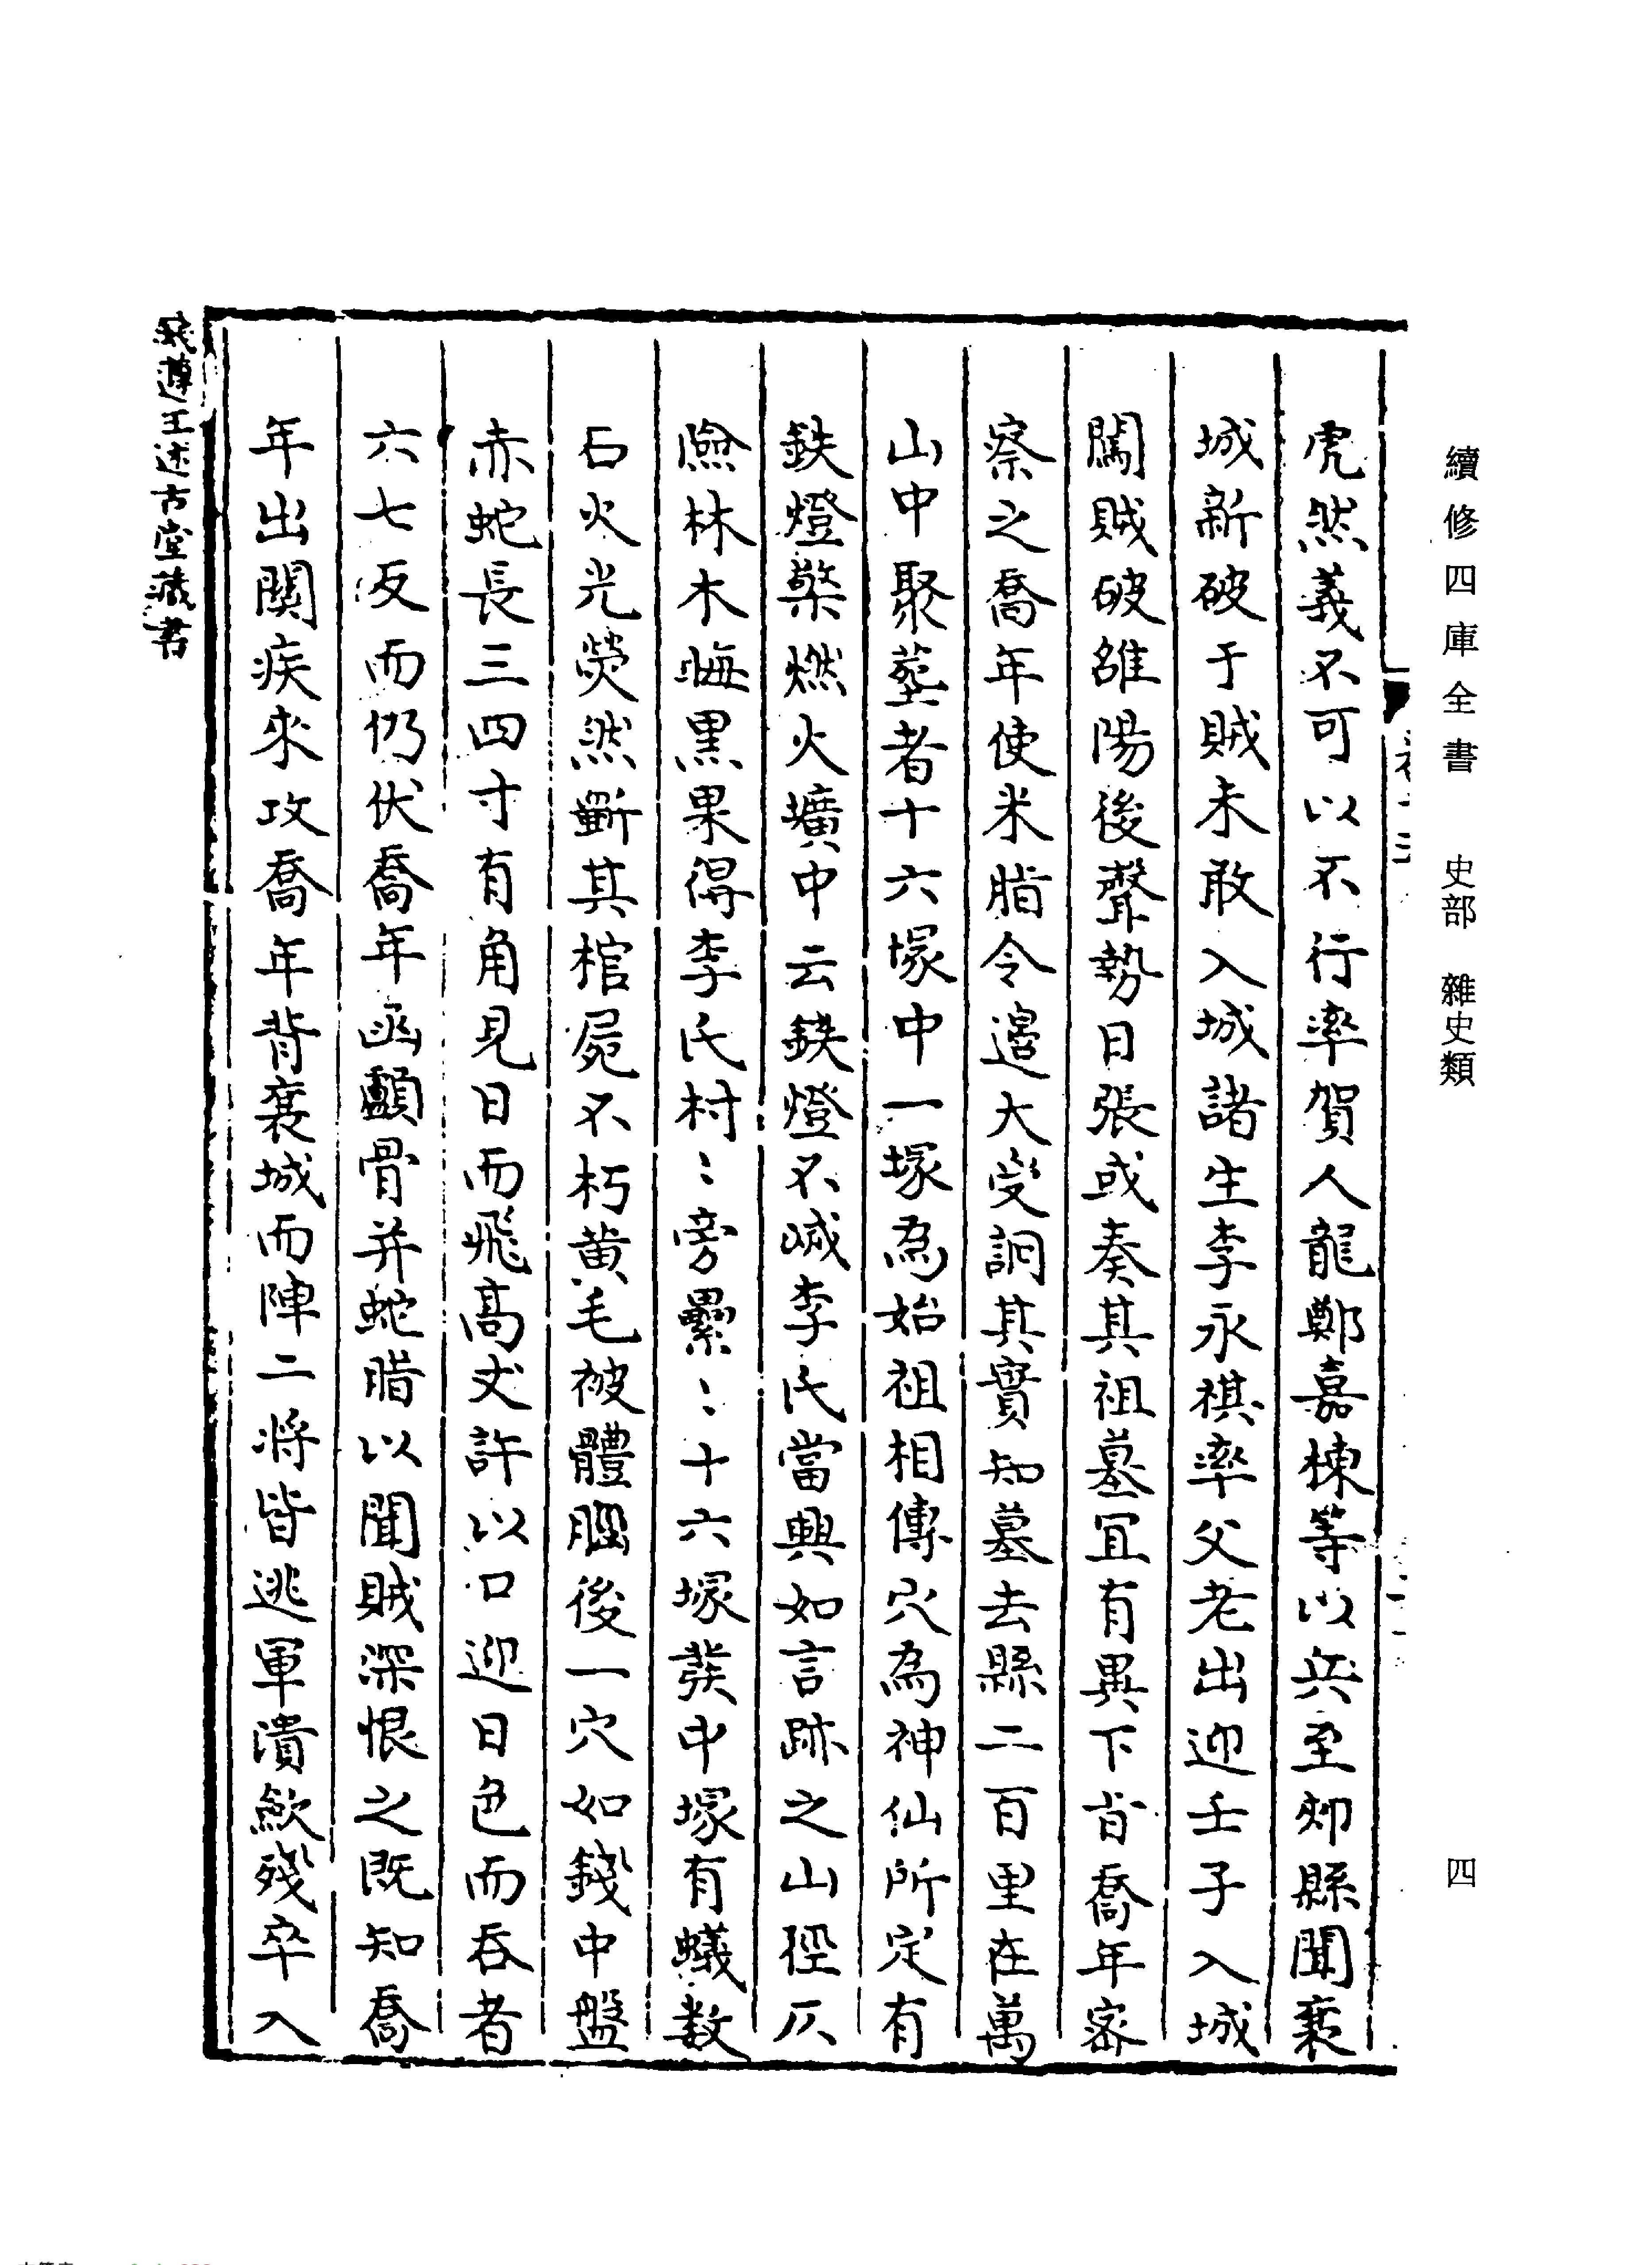 續修四庫全書 史部 雜史類
四
虎然義不可以不行率賀人龍鄭嘉棟等以兵至郟縣聞襄
城新破于賊未敢入城諸生李永祺率父老出迎壬子入城
闖賊破雒陽後聲勢日張或奏其祖墓冝有異下㫖喬年密
察之喬年使米脂令邊大受詗其實知墓去縣二百里在萬
山中聚塟者十六塚中一塚為始祖相傳穴為神仙所定有
鉄燈檠燃火壙中云鉄燈不滅李氏當興如言跡之山徑仄
險林木晦黒果得李氏村〻旁纍〻十六塚發中塚有蟻数
石火光熒然斵其棺屍不朽黄毛被體腦後一穴如錢中盤
赤蛇長三四寸有角見日而飛髙丈許以口迎日色而吞者
六七反而仍伏喬年函顱骨并蛇腊以聞賊深恨之既知喬
年出関疾來攻喬年背襄城而陣二将皆逃軍潰歛殘卒入
遵王述古堂藏書